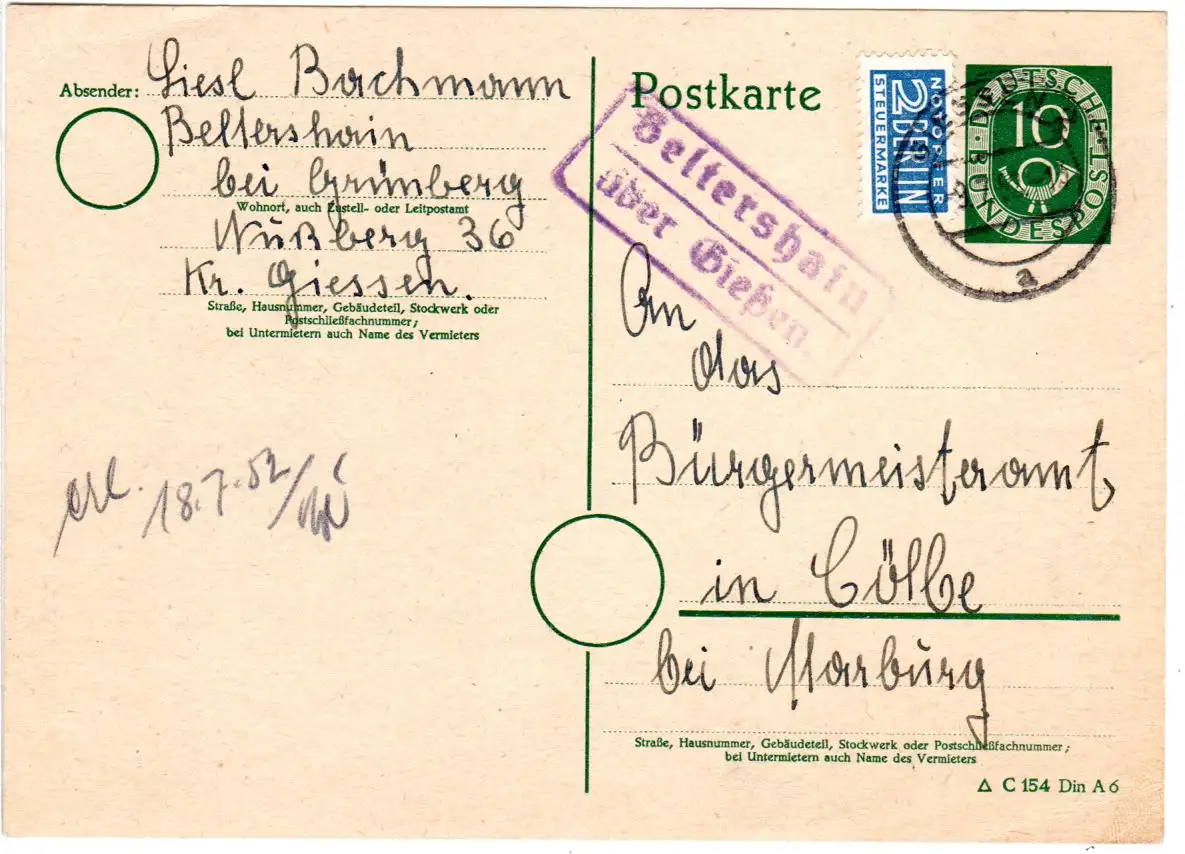 Absender: Liesl Bachmann
Beltershain
bei Grünberg
Wohnort, auch Zustell- oder Leitpostamt
Nußberg 36
Kr. Giessen.
Straße, Hausnummer, Gebäudeteil, Stockwerk oder
Postschließfachnummer;
bei Untermietern auch Name des Vermieters
erl. 18.7.52/
Postkarte
NOTOPFER
2 BERLIN
STEUERMARKE
DEUTSCHE BUNDESPOST
10
a
Beltershain
über Gießen.
An
das
Bürgermeisteramt
in Cölbe
bei Marburg
Straße, Hausnummer, Gebäudeteil, Stockwerk oder Postschließfachnummer;
bei Untermietern auch Name des Vermieters
C 154 Din A 6